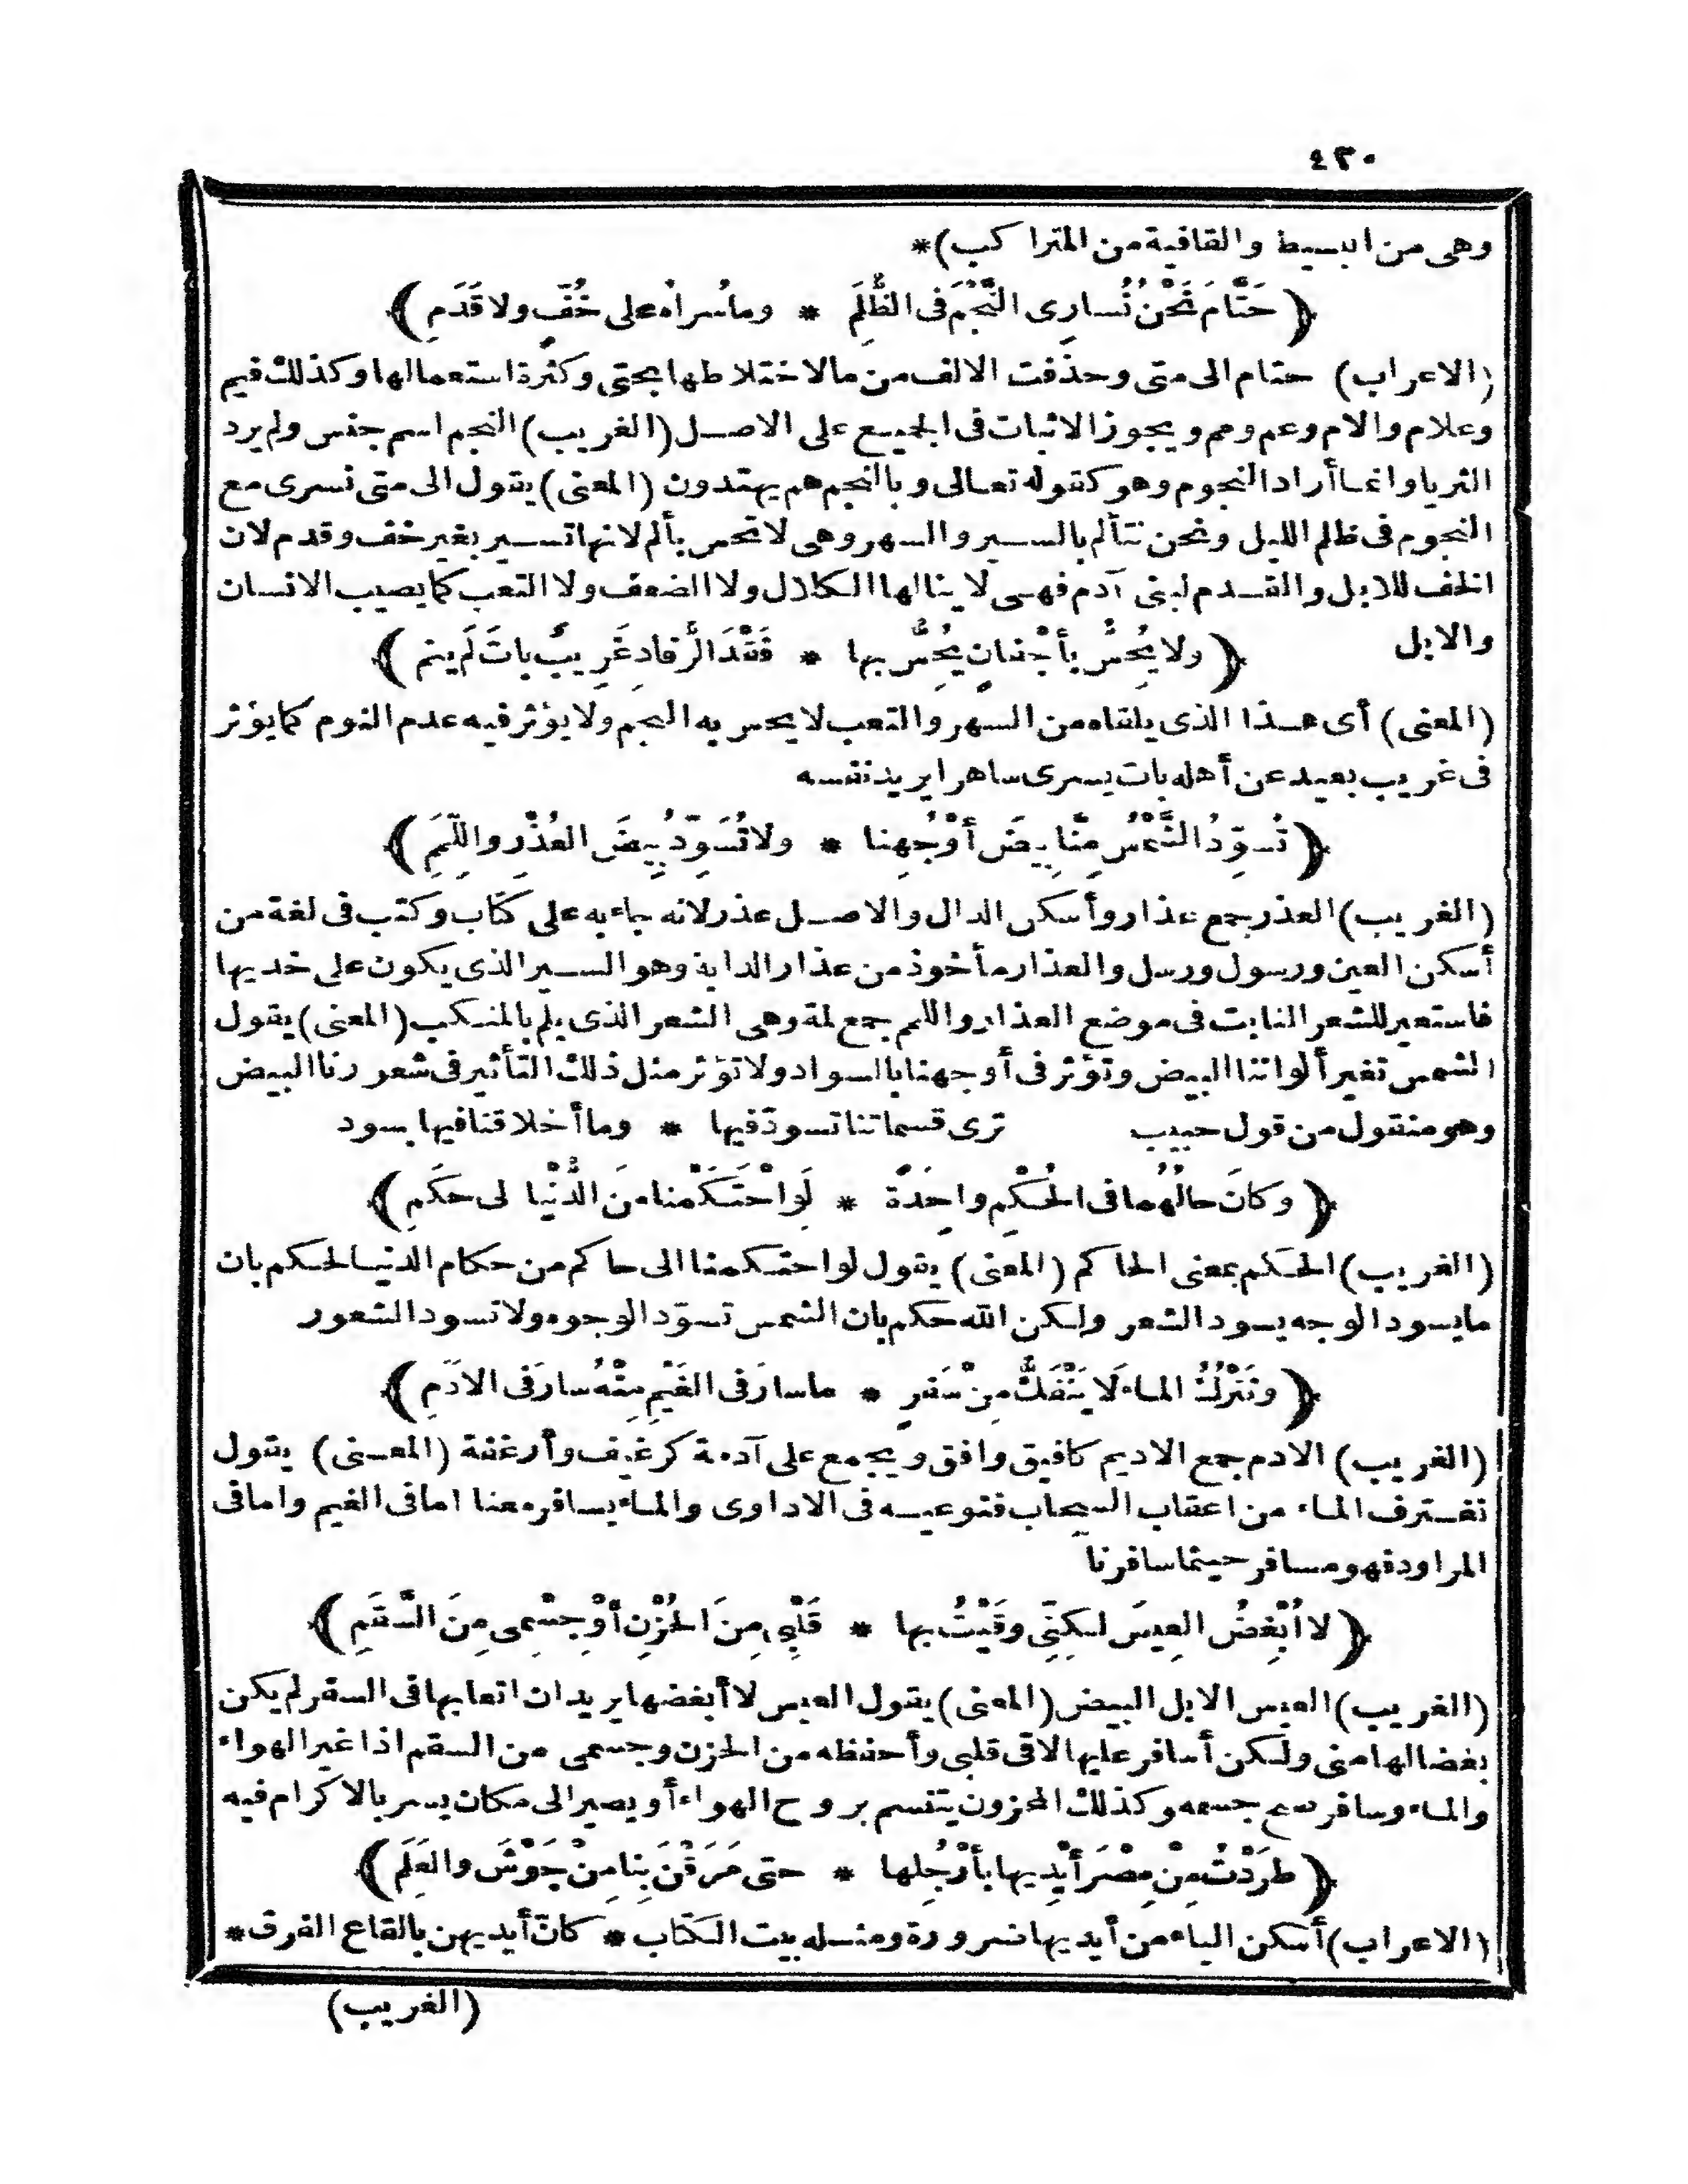 ٤٣٠
وهى من البسيط والقافية من المتراكب)*
﴿ حَتَّامَ نَحْنُ نُسارِى النَّجْمَ فى الظُّلَمِ * وما سُراهُ على خُفٍّ ولا قَدَمِ ﴾
(الاعراب) حتام الى متى وحذفت الالف من ما لاختلاطها بحتى وكثرة استعمالها وكذلك فيم
وعلام والام وعم ومم ويجوز الاثبات فى الجميع على الاصل (الغريب) النجم اسم جنس ولم يرد
الثريا وانما أراد النجوم وهو كقوله تعالى وبالنجم هم يهتدون (المعنى) يقول الى متى نسرى مع
النجوم فى ظلم الليل ونحن نتألم بالسير والسهر وهى لا تحس بألم لانها تسير بغير خف وقدم لان
الخف للابل والقدم لبنى آدم فهى لا ينالها الكلال ولا الضعف ولا التعب كما يصيب الانسان
والابل
﴿ ولا يُحِسُّ بأَجْفانٍ يُحِسُّ بها * فَقْدَ الرُّقادِ غَرِيبٌ باتَ لَمْ ينم ﴾
(المعنى) أى هذا الذى يلقاه من السهر والتعب لا يحس به النجم ولا يؤثر فيه عدم النوم كما يؤثر
فى غريب بعيد عن أهله بات يسرى ساهرا يريد نفسه
﴿ تُسوِّدُ الشَّمْسُ مِنَّا بِيضَ أَوْجُهِنا * ولا تُسَوِّدُ بِيضَ العُذْرِ واللِّمَمِ ﴾
(الغريب) العذر جمع عذار وأسكن الدال والاصل عذر لانه جاء به على كتاب وكتب فى لغة من
أسكن العين ورسول ورسل والعذار مأخوذ من عذار الدابة وهو السير الذى يكون على خديها
فاستعير للشعر النابت فى موضع العذار واللمم جمع لمة وهى الشعر الذى يلم بالمنكب (المعنى) يقول
الشمس تغير ألواننا البيض وتؤثر فى أوجهنا بالسواد ولا تؤثر مثل ذلك التأثير فى شعورنا البيض
وهو منقول من قول حبيب ترى قسماتنا تسودّ فيها * وما أخلاقنا فيها بسود
﴿ وكانَ حالُهُما فى الحُكْمِ واحِدَةً * لَوِ احْتَكَمْنا مِنَ الدُّنْيا الى حَكَمِ ﴾
(الغريب) الحكم بمعنى الحاكم (المعنى) يقول لو احتكمنا الى حاكم من حكام الدنيا لحكم بان
ما يسود الوجه يسود الشعر ولكن الله حكم بان الشمس تسوّد الوجوه ولا تسود الشعور
﴿ ونَتْرُكُ الماءَ لا يَنْفَكُّ مِنْ سَفَرٍ * ما سارَ فى الغَيْمِ مِنْهُ سارَ فى الادَمِ ﴾
(الغريب) الادم جمع الاديم كافيق وافق ويجمع على آدمة كرغيف وأرغفة (المعنى) يقول
نغترف الماء من اعقاب السحاب فنوعيه فى الاداوى والماء يسافر معنا اما فى الغيم واما فى
المزاود فهو مسافر حيثما سافرنا
﴿ لا أُبْغِضُ العِيسَ لكِنِّى وقَيْتُ بها * قَلْبِى مِنَ الحُزْنِ أَوْ جِسْمِى مِنَ السَّقَمِ ﴾
(الغريب) العيس الابل البيض (المعنى) يقول العيس لا أبغضها يريد ان اتعابها فى السفر لم يكن
بغضا لها منى ولكن أسافر عليها لاقى قلبى وأحفظه من الحزن وجسمى من السقم اذا غير الهواء
والماء وسافر صح جسمه وكذلك المحزون يتنسم بروح الهواء أو يصير الى مكان يسر بالاكرام فيه
﴿ طَرَدْتُ مِنْ مِصْرَ أَيْدِيها بأَرْجُلِها * حتى مَرَقْنَ بِنا مِنْ جَوْشَ والعَلَمِ ﴾
(الاعراب) أسكن الياء من أيديها ضرورة ومثله بيت الكتاب * كأنّ أيديهن بالقاع القرق *
(الغريب)